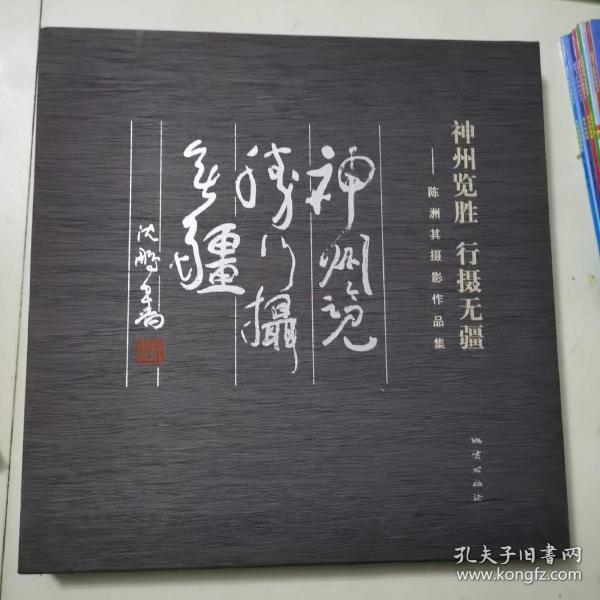 神州览胜 行摄无疆
——陈洲其摄影作品集
神州览
胜行摄
无疆
沈鹏题
地质出版社
孔夫子旧书网
www.kongfz.com